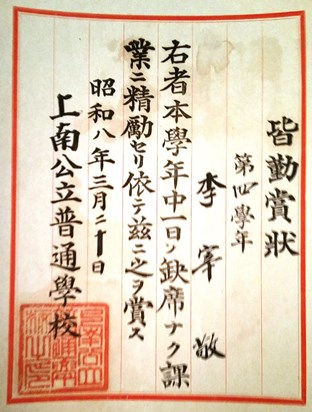 皆勤賞狀
第四學年
李宰敬
右者本學年中一日ノ缺席ナク課
業ニ精勵セリ依テ茲ニ之ヲ賞ス
昭和八年三月二十日
上南公立普通學校